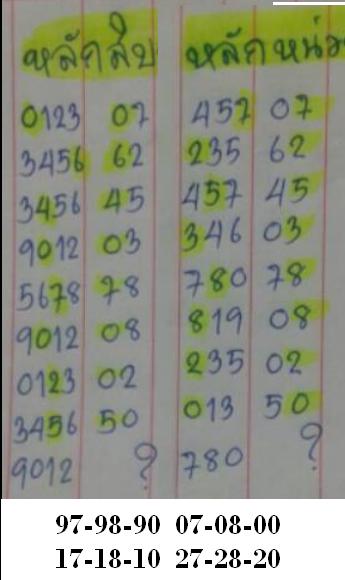 หลักสิบ หลักหน่วย
0123 07 457 07
3456 62 235 62
3456 45 457 45
9012 03 346 03
5678 78 780 78
9012 08 819 08
0123 02 235 02
3456 50 013 50
9012 ? 780 ?
97-98-90 07-08-00
17-18-10 27-28-20